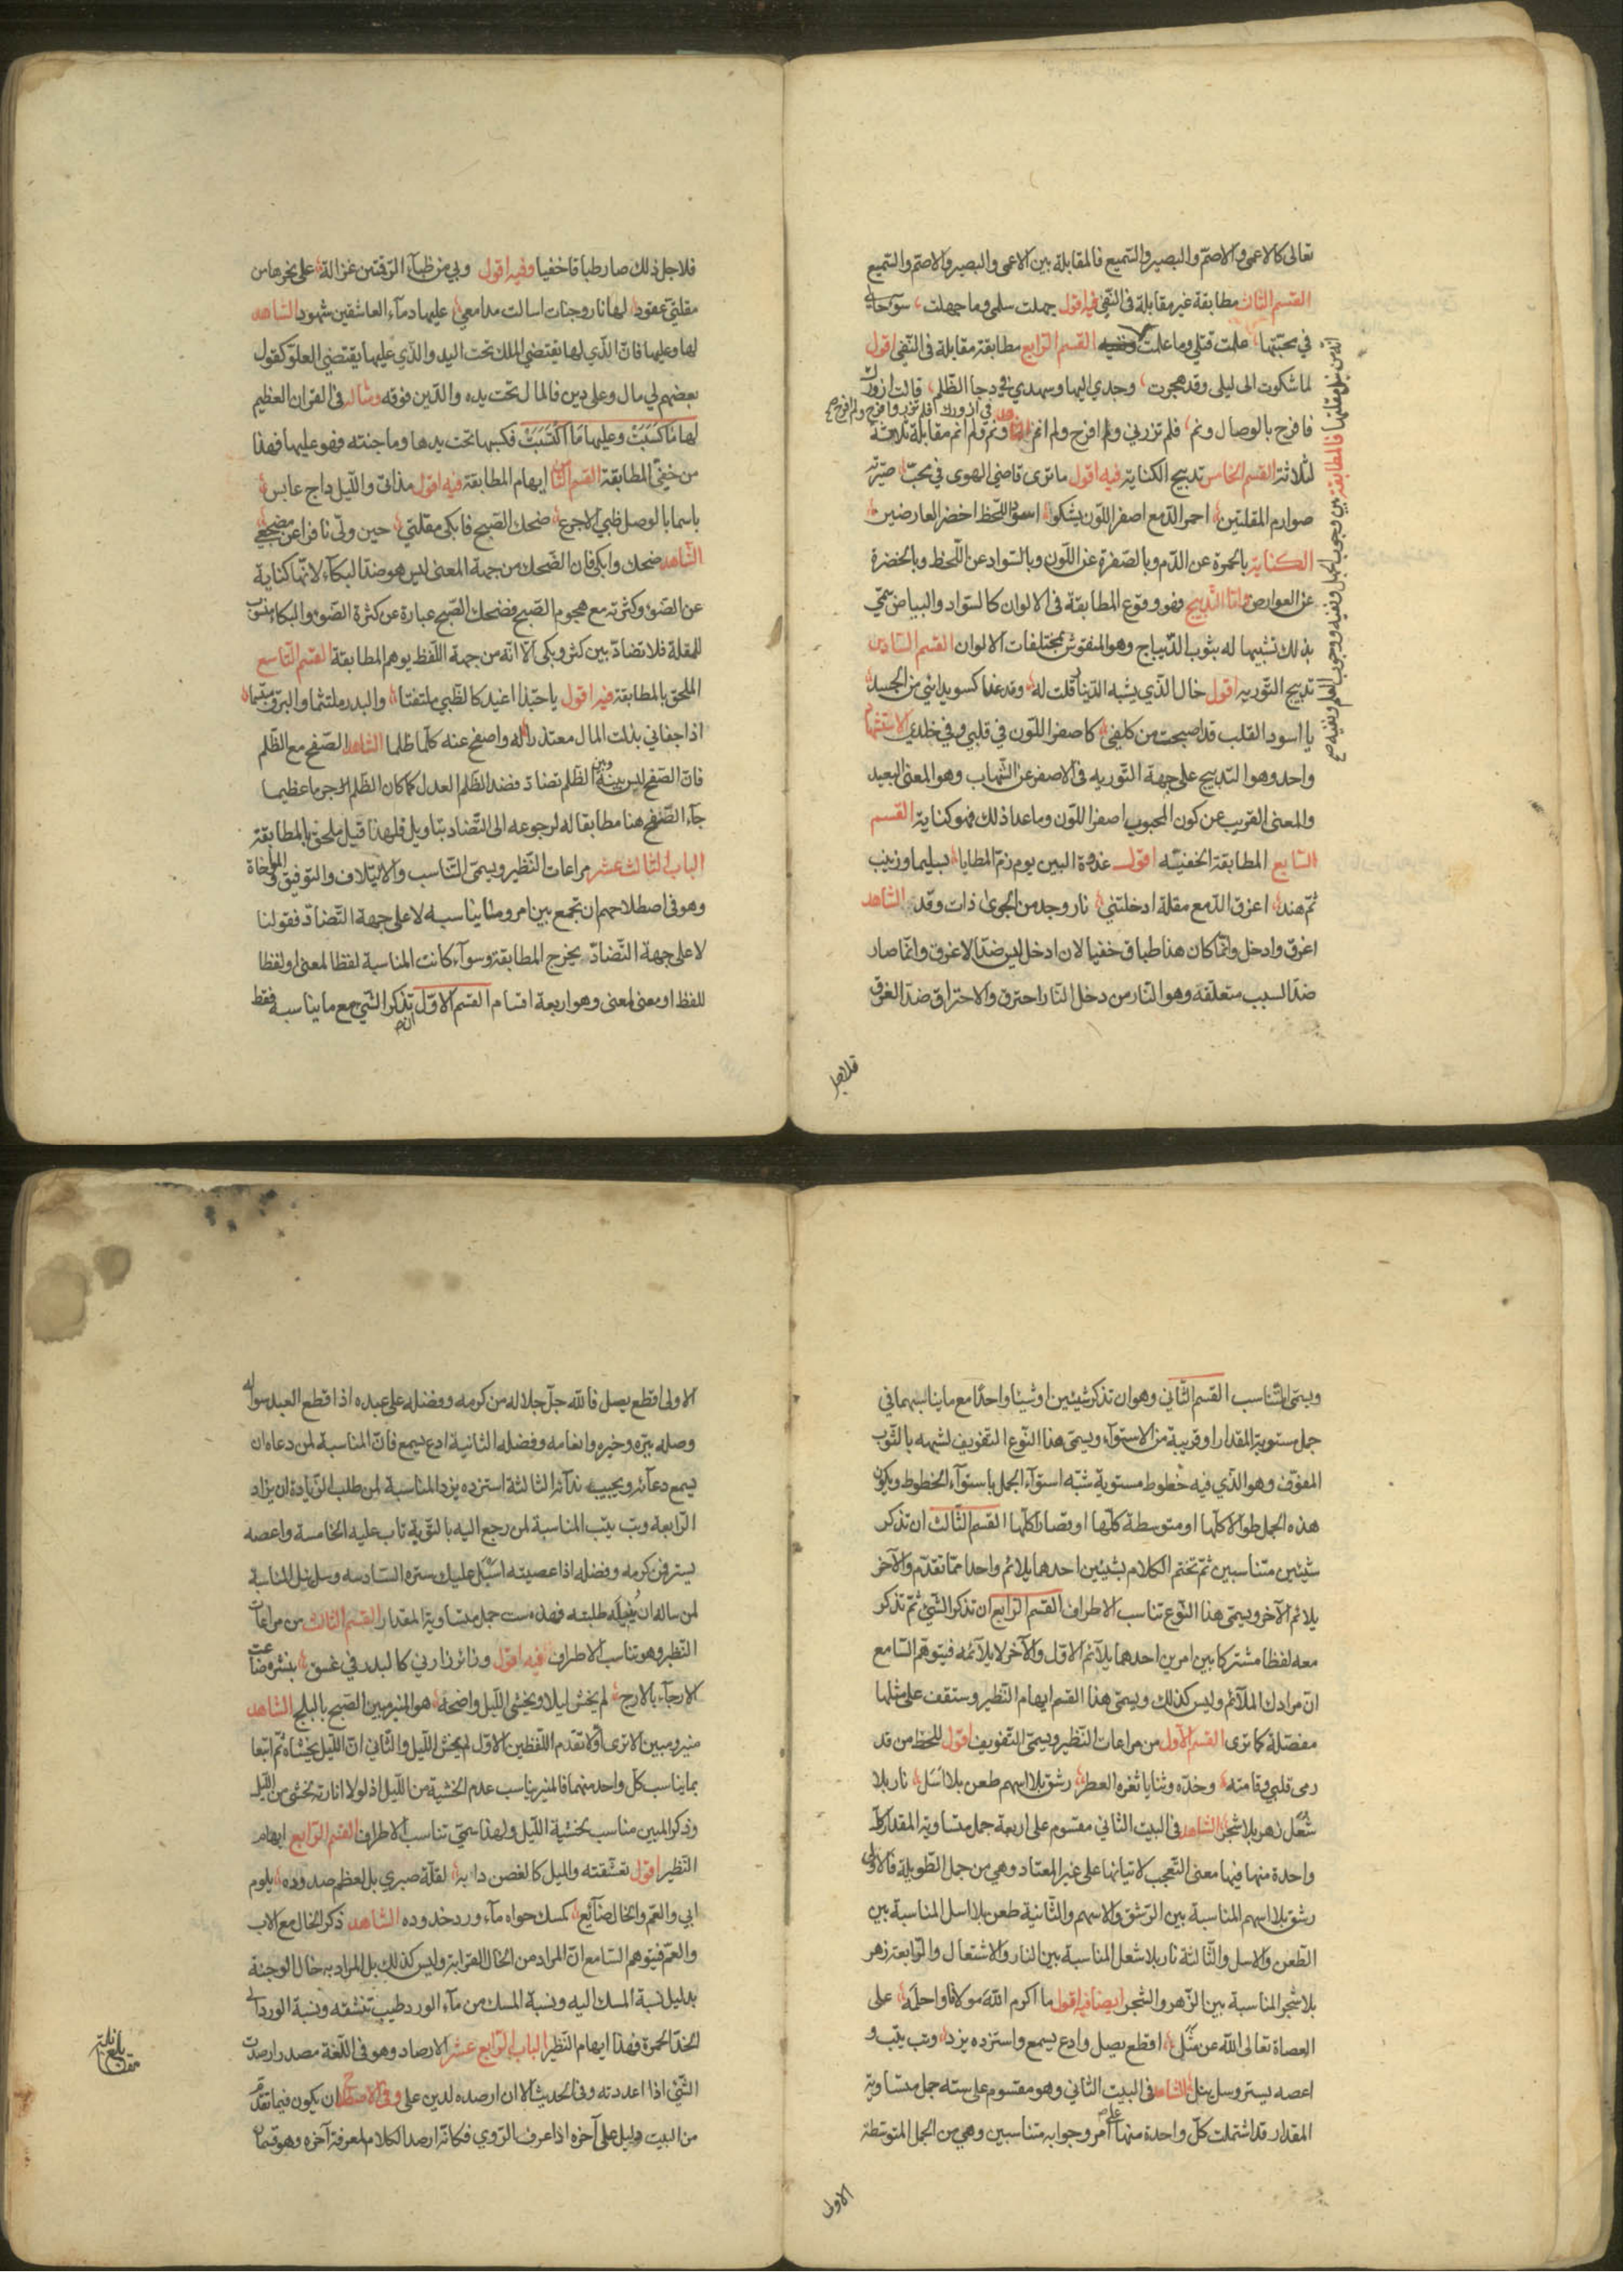 تعالى كالاعمى والاصمّ والبصير والسّميع فالمقابلة بين الاعمى والبصير والاصمّ والسّميع
القسم الثالث مطابقة غير مقابلة فى النّفي فيه اقول جهلت سلمى وما جهلت، سوء حالي
في محبّتها، علمت قتلي وما علمت القسم الرّابع مطابقة مقابلة فى النّفى اقول
لما شكوت الى ليلى وقد هجرت، وجدي اليها وسهدي في دجا الظّلم، قالت ازورك
فافرح بالوصال ونم، فلم تزرني ولم افرح ولم انم ونم ولم انم مقابلة ثلاثة
لثلاثة القسم الخامس تدبيج الكناية فيه اقول ما ترى قاضي الهوى في محبّ، صيّرته
صوارم المقلتين، احمر الدّمع اصفر اللّون يشكو، اسود اللّحظ اخضر العارضين
الكناية بالحمرة عن الدّم وبالصّفرة عن اللّون وبالسّواد عن اللّحظ وبالخضرة
عن العوارض وامّا التّدبيج فهو وقوع المطابقة فى الالوان كالسّواد والبياض سمّي
بذلك تشبيها له بثوب الدّيباج وهو المنقوش بمختلفات الالوان القسم السّادس
تدبيج التّوريه اقول خال الّذي يشبه الدّينار قلت له، وقد غدا كسويداني من الجسد
يا اسود القلب قد اصبحت من كلفي، كاصفر اللّون في قلبي وفي خلدي الاستشهاد
واحد وهو التدبيج على جهة التّوريه فى الاصفر عن الشّهاب وهو المعنى البعيد
والمعنى القريب عن كون المحبوب اصفر اللّون وما عدا ذلك فهو كناية القسم
السّابع المطابقة الخفيّه اقول غدوة البين يوم زمّ المطايا، بسليما وزينب
ثمّ هند، اغرق الدّمع مقلة ادخلتني، نار وجد من الجوى ذات وقد، الشّاهد
اغرق وادخل وانّما كان هذا طباق خفيا لان ادخل ليس ضدّا لاغرق وانّما صار
ضدّا لسبب متعلقه وهو النّار من دخل النّار احترق والاحتراق ضدّ الغرق
فلاجل
فلاجل ذلك صار طباقا خفيا وفيه اقول وبي من ظبآء الرّقمتين غزالة، على نحرها من
مقلتيّ عقود، لها نار وجنات اسالت مدامعي، عليها دمآء العاشقين شهود الشّاهد
لها وعليها فانّ الّذي لها يقتضي الملك تحت اليد والّذي عليها يقتضي العلوّ كقول
بعضهم لي مال وعلي دين فالمال تحت يده والدّين فوقه ومثاله فى القران العظيم
لها ما كسبت وعليها ما اكتسبت فكسبها تحت يدها وما جنته فهو عليها فهذا
من خفيّ المطابقة القسم الثامن ايهام المطابقة فيه اقول مذ اتى واللّيل داج عابس،
باسما بالوصل ظبي الاجرع، ضحك الصّبح فابكى مقلتي، حين ولّى نافرا عن مضجعي،
الشّاهد ضحك وابكى فان الضّحك من جهة المعنى ليس هو ضدّ البكآء لانّها كناية
عن الضّوء وكثرته مع هجوم الصّبح فضحك الصّبح عبارة عن كثرة الضّوء والبكاء منسوب
للمقلة فلا تضادّ بين كثر وبكى الّا انّه من جهة اللّفظ يوهم المطابقة القسم التّاسع
الملحق بالمطابقة فيه اقول يا حبّذا اغيد كالظّبي ملتفتا، والبدر ملتثما والبرق مبتسما،
اذا جفاني بذلت المال معتذرا، له واصفح عنه كلّما ظلما الشّاهد الصّفح مع الظّلم
فانّ الصّفح ليس بينه وبين الظّلم تضادّ فضد الظّلم العدل لما كان الظّلم جرما عظيما
جآء الصّفح هنا مطابقا له لرجوعه الى التّضاد بتاويل فلهذا قيل ملحق بالمطابقة
الباب الثّالث عشر مراعات النّظير ويسمّى التّناسب والائتلاف والتوفيق والمواخاة
وهو فى اصطلاحهم ان تجمع بين امر وما يناسبه لا على جهة التّضادّ فقولنا
لا على جهة التّضادّ يخرج المطابقة وسوآء كانت المناسبة لفظا لمعنى او لفظا
للفظ او معنى لمعنى وهو اربعة اقسام القسم الاوّل تذكر الشّيء مع ما يناسبه فقط
ويسمّى التّناسب القسم الثّاني وهو ان تذكر شيئين او شيئا واحدا مع ما يناسبهما في
جمل مستوية المقدار او قريبة من الاستوآء ويسمّى هذا النّوع التفويف لشبهه بالثّوب
المفوّف وهو الّذي فيه خطوط مستوية شبّه استوآء الجمل باستوآء الخطوط ويكون
هذه الجمل طوالا كلّها او متوسطة كلّها او قصارا كلّها القسم الثّالث ان تذكر
شيئين متناسبين ثمّ تختم الكلام بشيئين احدهما يلائم واحدا ممّا تقدّم والآخر
يلائم الآخر ويسمّى هذا النّوع تناسب الاطراف القسم الرّابع ان تذكر الشّيء ثمّ تذكر
معه لفظا مشتركا بين امرين احدهما يلآئم الاوّل والآخر لا يلآئمه فيتوهّم السّامع
انّ مرادك الملآئم وليس كذلك ويسمّى هذا القسم ايهام النّظير وستقف على مثلها
مفصّلة كما ترى القسم الاوّل من مراعات النّظير ويسمّى التّفويف اقول للحظ من قد
رمى قلبي وقامته، وخدّه وثنايا ثغره العطر، رشق بلا اسهم طعن بلا اسل، نار بلا
شعل زهر بلا شجر، الشاهد فى البيت الثّاني مقسوم على اربعة جمل متساوية المقدار كلّ
واحدة منها فيها معنى التّعجب لاتيانها على غير المعتاد وهي من جمل الطّويلة فالاولى
رشق بلا اسهم المناسبة بين الرّشق والاسهم والثّانية طعن بلا اسل المناسبة بين
الطّعن والاسل والثّالثة نار بلا شعل المناسبة بين النار والاشتعال والرّابعة زهر
بلا شجر المناسبة بين الزّهر والشّجر ايضا فيه اقول ما اكرم اللّه مولانا واحلمه، على
العصاة تعالى اللّه عن مثل، اقطع يصل وادع يسمع واستزده يزد، وتب يتب و
اعصه يستر وسل ينل، الشاهد فى البيت الثاني وهو مقسوم على ستّه جمل متساوية
المقدار قد اشتملت كلّ واحدة منها على امر وجوابه متناسبين وهي من الجمل المتوسّطة
الاولى
الاولى اقطع يصل فاللّه جلّ جلاله من كرمه وفضله على عبده اذا قطع العبد سواله
وصله ببرّه وخيره وانعامه وفضله الثانية ادع يسمع فانّ المناسبة لمن دعاه ان
يسمع دعآئه ويجيب ندآئه الثالثة استزده يزد المناسبة لمن طلب الزّيادة ان يزاد
الرّابعة وتب يتب المناسبة لمن رجع اليه بالتّوبة تاب عليه الخامسة واعصه
يستر فمن كرمه وفضله اذا عصيته اسبل عليك ستره السّادسه وسل ينل المناسبة
لمن ساله ان ينيله طلبته فهذه ست جمل متساوية المقدار القسم الثالث من مراعات
النّظير وهو تناسب الاطراف فيه اقول وزائر زارني كالبدر في غسق،
الارجآء بالارج، لم يخش ليلا ويخشى اللّيل واضحه، هو المنير مبين الصّبح بالبلج الشّاهد
منير ومبين الا ترى اوّلا تقدّم اللّفظين الاوّل لم يخش اللّيل والثّاني انّ اللّيل يخشاه ثمّ اتبعا
بما يناسب كلّ واحد منهما فالمنير يناسب عدم الخشية من اللّيل اذ لولا انارته يخشى من اللّيل
وذكر المبين مناسب لخشية اللّيل ولهذا سمّي تناسب الاطراف القسم الرّابع ايهام
النّظير اقول تعشّقته والميل كالغصن دابه، لقلّة صبري بل لعظم صدوده، يلوم
ابي والعمّ والخال ضآئع، كمسك حواه مآء ورد خدوده الشّاهد ذكر الخال مع الاب
والعمّ فيتوهم السّامع انّ المراد من الخال القرابة وليس كذلك بل المراد به خال الوجنة
بدليل نسبة المسك اليه ونسبة المسك من مآء الورد طيب تنشقه ونسبة الورد الى
الخدّ الحمرة فهذا ايهام النّظير الباب الرّابع عشر الارصاد وهو فى اللّغة مصدر ارصدت
الشّيء اذا اعددته وفى الحديث الّا ان ارصده لدين على وفى الاصطلاح ان يكون فيما تقدّم
من البيت دليل على آخره اذا عرف الرّوي فكانّه ارصد الكلام لمعرفة آخره وهو قسمان